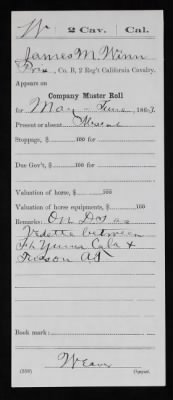 W | 2 Cav. | Cal.
James M. Winn
Priv., Co. B, 2 Reg't California Cavalry.
Appears on
Company Muster Roll
for May - June, 1863.
Present or absent Absent
Stoppage, $ 100 for
Due Gov't, $ 100 for
Valuation of horse, $ 100
Valuation of horse equipments, $ 100
Remarks: On D.S. as
Vedette between
Ft Yuma Cala &
Tucson AT
Book mark:
Weaver
(358) Copyist.